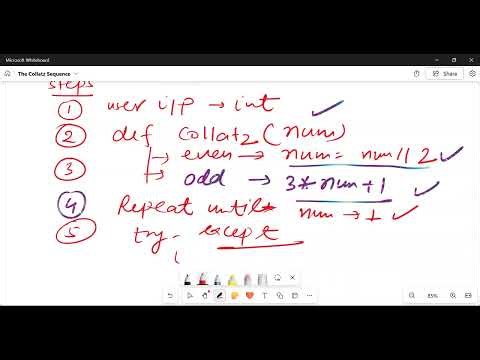 Microsoft Whiteboard
The Collatz Sequence
steps
1 user i/p → int ✓
2 def collatz (num)
3 → even → num = num // 2 ✓
→ odd → 3 * num + 1 ✓
4 Repeat until num → 1 ✓
5 try, except
85%